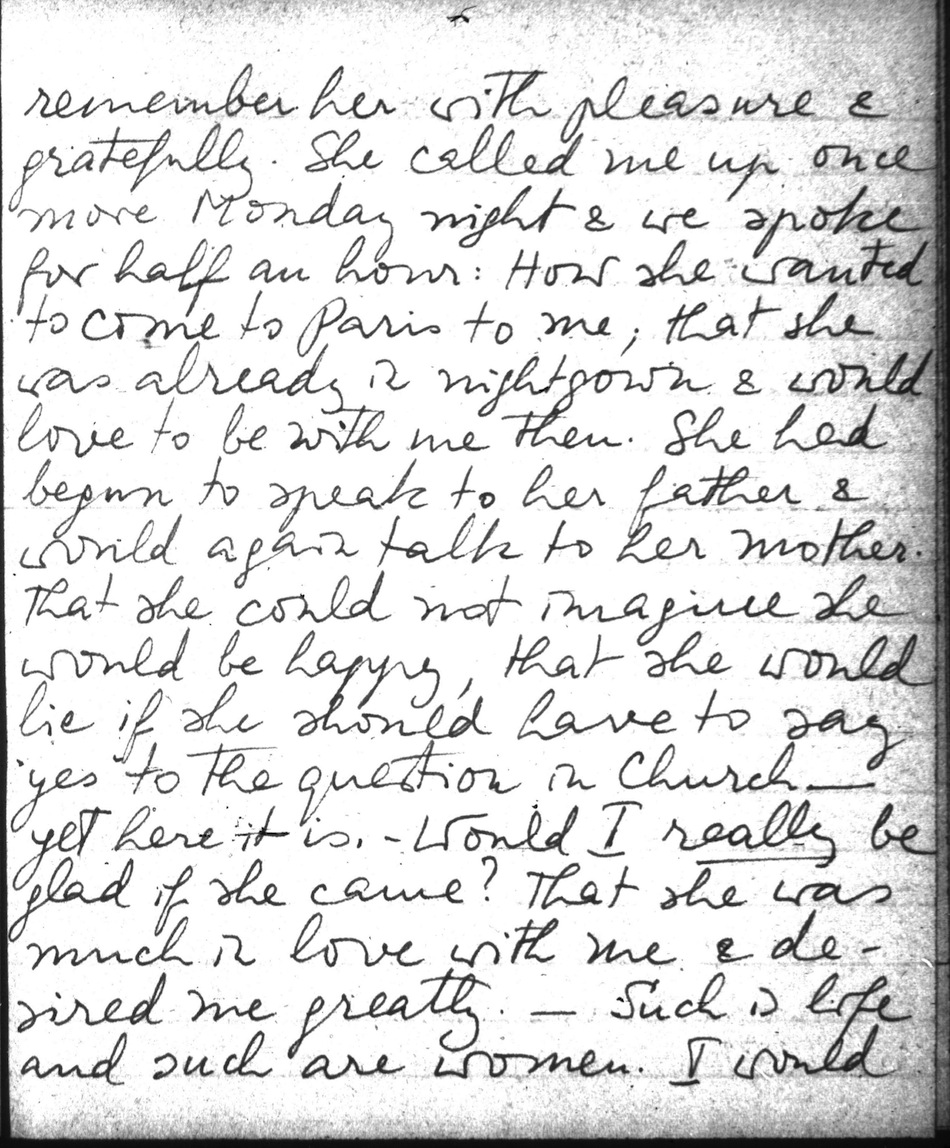 remember her with pleasure &
gratefully. She called me up once
more Monday night & we spoke
for half an hour: How she wanted
to come to Paris to me; that she
was already in nightgown & would
love to be with me then. She had
begun to speak to her father &
would again talk to her mother.
That she could not imagine she
would be happy, that she would
lie if she should have to say
yes to the question in Church —
yet here it is. - Would I really be
glad if she came? That she was
much in love with me & de-
sired me greatly. — Such is life
and such are women. I would